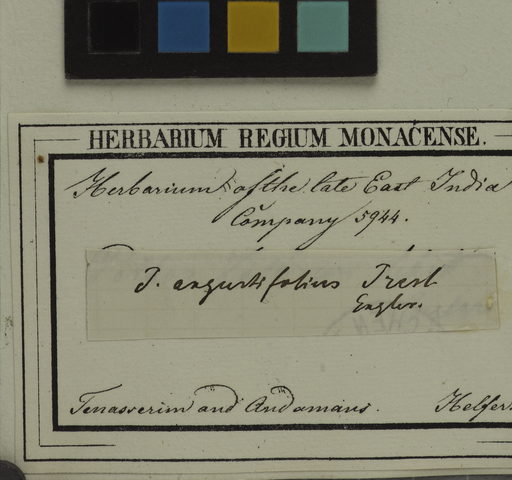 HERBARIUM REGIUM MONACENSE.
Herbarium of the late East India
Company 5944.
T. angustifolius Tresl
Engler.
Tenasserim and Andamans. Helfer